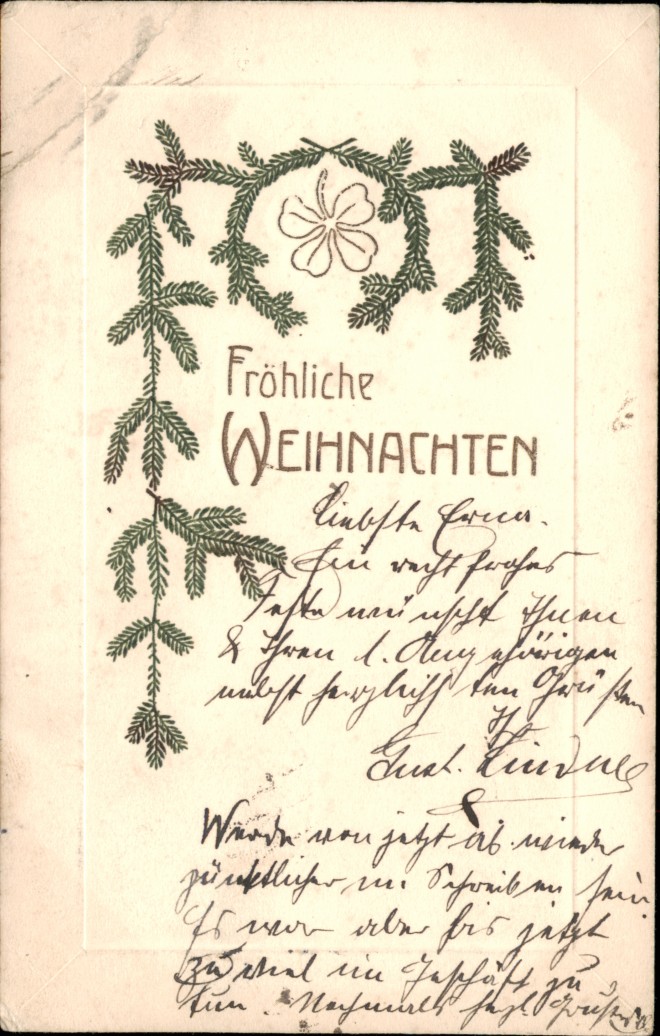 Fröhliche
WEIHNACHTEN
Liebste Erna.
Ein recht frohes
Fest wünscht Ihnen
& Ihren l. Angehörigen
nebst herzlichsten Grüßen
Ihr
Gust. Lindner
Werde von jetzt ab wieder
pünktlicher m. Schreiben sein
Es war aber bis jetzt
zu viel im Geschäft zu
tun. Nochmals herzl. Grüße